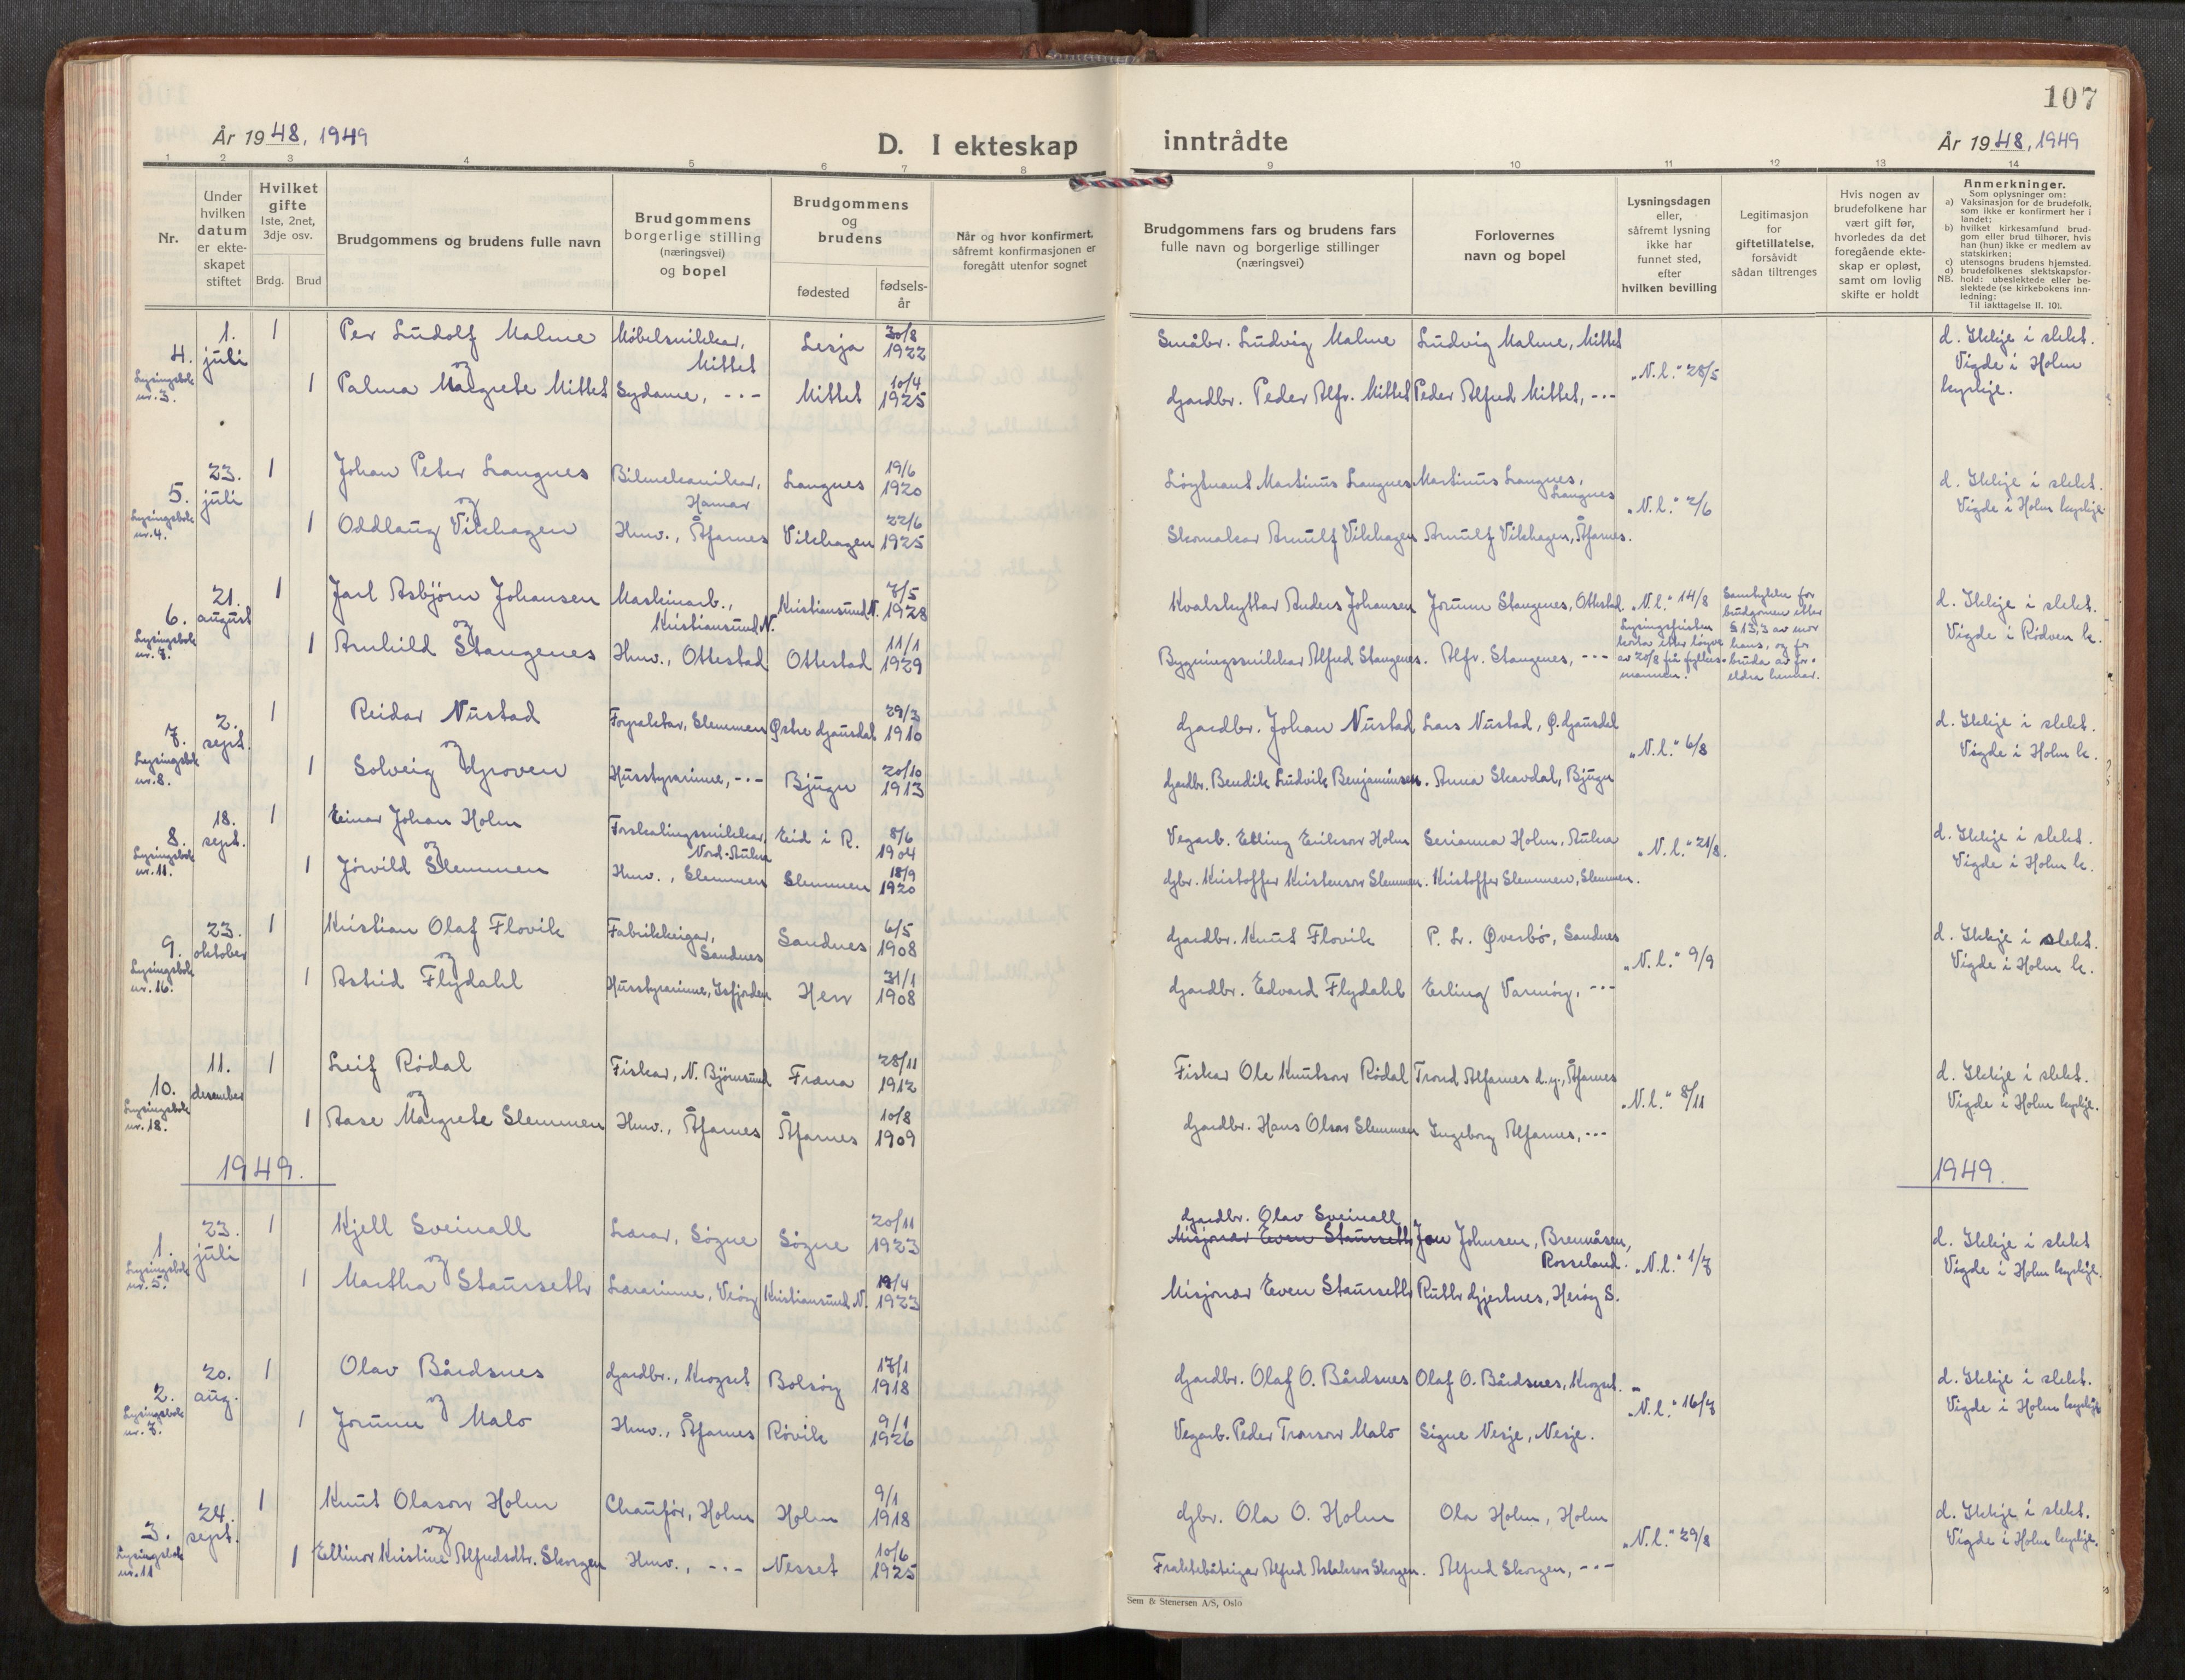 107
År 1948, 1949
D. I ekteskap
inntrådte
År 1948, 1949
1 2 3 4 5 6 7 8 9 10 11 12 13 14
Nr.
Under
hvilken
datum
er ekte-
skapet
stiftet
Hvilket
gifte
1ste, 2net,
3dje osv.
Brdg. Brud
Brudgommens og brudens fulle navn
Brudgommens
borgerlige stilling
(næringsvei)
og bopel
Brudgommens
og
brudens
fødested
fødsels-
år
Når og hvor konfirmert,
såfremt konfirmasjonen er
foregått utenfor sognet
Brudgommens fars og brudens fars
fulle navn og borgerlige stillinger
(næringsvei)
Forlovernes
navn og bopel
Lysningsdagen
eller,
såfremt lysning
ikke har
funnet sted,
efter
hvilken bevilling
Legitimasjon
for
giftetillatelse,
forsåvidt
sådan tiltrenges
Hvis nogen av
brudefolkene har
vært gift før,
hvorledes da det
foregående ekte-
skap er opløst,
samt om lovlig
skifte er holdt
Anmerkninger.
Som oplysninger om:
a) Vaksinasjon for de brudefolk,
som ikke er konfirmert her i
landet;
b) hvilket kirkesamfund brud-
gom eller brud tilhører, hvis
han (hun) ikke er medlem av
statskirken;
c) utensogns brudens hjemsted.
d) brudefolkenes slektskapsfor-
NB. hold: ubeslektede eller be-
slektede (se kirkebokens inn-
ledning:
Til iakttagelse II. 10).
4. Lysingsbok nr. 3. 1. juli 1 Per Ludolf Malme Møbelsnikkar, Mittet Lesja 30/8 1922 Småbr. Ludvig Malme Ludvig Malme, Mittet
og "N.l." 28/5 d. Ikkje i slekt. Vigde i Holm kyrkje.
1 Palma Margrete Mittet Sydame, -"- Mittet 10/4 1925 Gardbr. Peder Alfr. Mittet Peder Alfred Mittet, -"-
5. Lysingsbok nr. 4. 23. juli 1 Johan Peter Langnes Bilmekanikar, Hamar Langnes 19/6 1920 Løytnant Martinus Langnes Martinus Langnes, Langnes
og "N.l." 2/6 d. Ikkje i slekt. Vigde i Holm kyrkje.
1 Oddlaug Vikhagen Hmv., Åfarnes Vikhagen 22/6 1925 Skomakar Arnulf Vikhagen Arnulf Vikhagen, Åfarnes.
6. Lysingsbok nr. 7. 21. august 1 Jarl Asbjørn Johansen Maskinarb., Kristiansund N. Kristiansund N. 7/5 1928 Kvalskyttar Anders Johansen Jorunn Stangenes, Ottestad
og "N.l." 14/8 Lysingsfristen korta etter løyve av 20/8 frå fylkesmannen. Samtykke for brudgomen etter § 13,3 av mor hans, og for bruda av foreldra hennar. d. Ikkje i slekt. Vigde i Rødven k.
1 Arnhild Stangenes Hmv., Ottestad Ottestad 11/1 1929 Bygningssnikkar Alfred Stangenes. Alfr. Stangenes, -"-
7. Lysingsbok nr. 8. 2. sept. 1 Reidar Nustad Forpaktar, Slemmen Østre Gausdal 29/3 1910 Gardbr. Johan Nustad Lars Nustad, Ø. Gausdal
og "N.l." 6/8 d. Ikkje i slekt. Vigde i Holm k.
1 Solveig Groven Husstyrarinne, -"- Bjugn 20/10 1913 Gardbr. Bendik Ludvik Benjaminsen. Anna Skavdal, Bjugn
8. Lysingsbok nr. 11. 18. sept. 1 Einar Johan Holm Forskalingssnikkar, Nord-Aukra Eid i R. 8/6 1904 Vegarb. Elling Erikson Holm Serianna Holm, Aukra
og "N.l." 21/8. d. Ikkje i slekt. Vigde i Holm k.
1 Jorvild Slemmen Hmv., Slemmen Slemmen 18/9 1920 Gbr. Kristoffer Kristenson Slemmen. Kristoffer Slemmen, Slemmen.
9. Lysingsbok nr. 16. 23. oktober 1 Kristian Olaf Flovik Fabrikkeigar, Sandnes Sandnes 6/5 1908 Gardbr. Knut Flovik P. L. Øverbø, Sandnes
og "N.l." 9/9 d. Ikkje i slekt. Vigde i Holm k.
1 Astrid Flydahl Husstyrarinne, Isfjorden Hen 31/1 1908 Gardbr. Edvard Flydahl Erling Varmøy, -"-
10. Lysingsbok nr. 18. 11. desember 1 Leif Rødal Fiskar, N. Bjørnsund Fræna 28/11 1912 Fiskar Ole Knutson Rødal Trond Alfarnes d.y., Åfarnes
og "N.l." 8/11 d. Ikkje i slekt. Vigde i Holm kyrkje.
1 Aase Margrete Slemmen Hmv., Åfarnes Åfarnes 10/8 1909 Gardbr. Hans Olson Slemmen Ingeborg Alfarnes, -"-
1949. 1949.
1. Lysingsbok nr. 5. 23. juli 1 Kjell Sveinall Lærar, Søgne Søgne 20/11 1923 Gardbr. Olav Sveinall Misjonær Even Staurseth Jon Johnsen, Brennåsen, Rosseland.
og "N.l." 1/7 d. Ikkje i slekt Vigde i Holm kyrkje.
1 Martha Staurseth Lærarinne, Veøy Kristiansund N. 19/4 1923 Misjonær Even Staurseth Ruth Gjertnes, Herøy S.
2. Lysingsbok nr. 7. 20. aug. 1 Olav Bårdsnes Gardbr., Krogset Bolsøy 17/1 1918 Gardbr. Olaf O. Bårdsnes Olaf O. Bårdsnes, Krogset.
og "N.l." 16/7 d. Ikkje i slekt. Vigde i Holm kyrkje
1 Jorunn Malo Hmv., Åfarnes Røvik 9/1 1926 Vegarb. Peder Tronson Malo Signe Nesje, Nesje.
3. Lysingsbok nr. 11 24. sept. 1 Knut Olason Holm Chaufør, Holm Holm 9/1 1918 Gbr. Ola O. Holm Ola Holm, Holm
og "N.l." 29/8 d. Ikkje i slekt. Vigde i Holm kyrkje.
1 Ellinor Kristine Alfredsdtr. Skorgen Hmv., -"- Nesset 10/6 1925 Fraktebåteigar Alfred Aslakson Skorgen. Alfred Skorgen, -"-
Sem & Stenersen A/S, Oslo